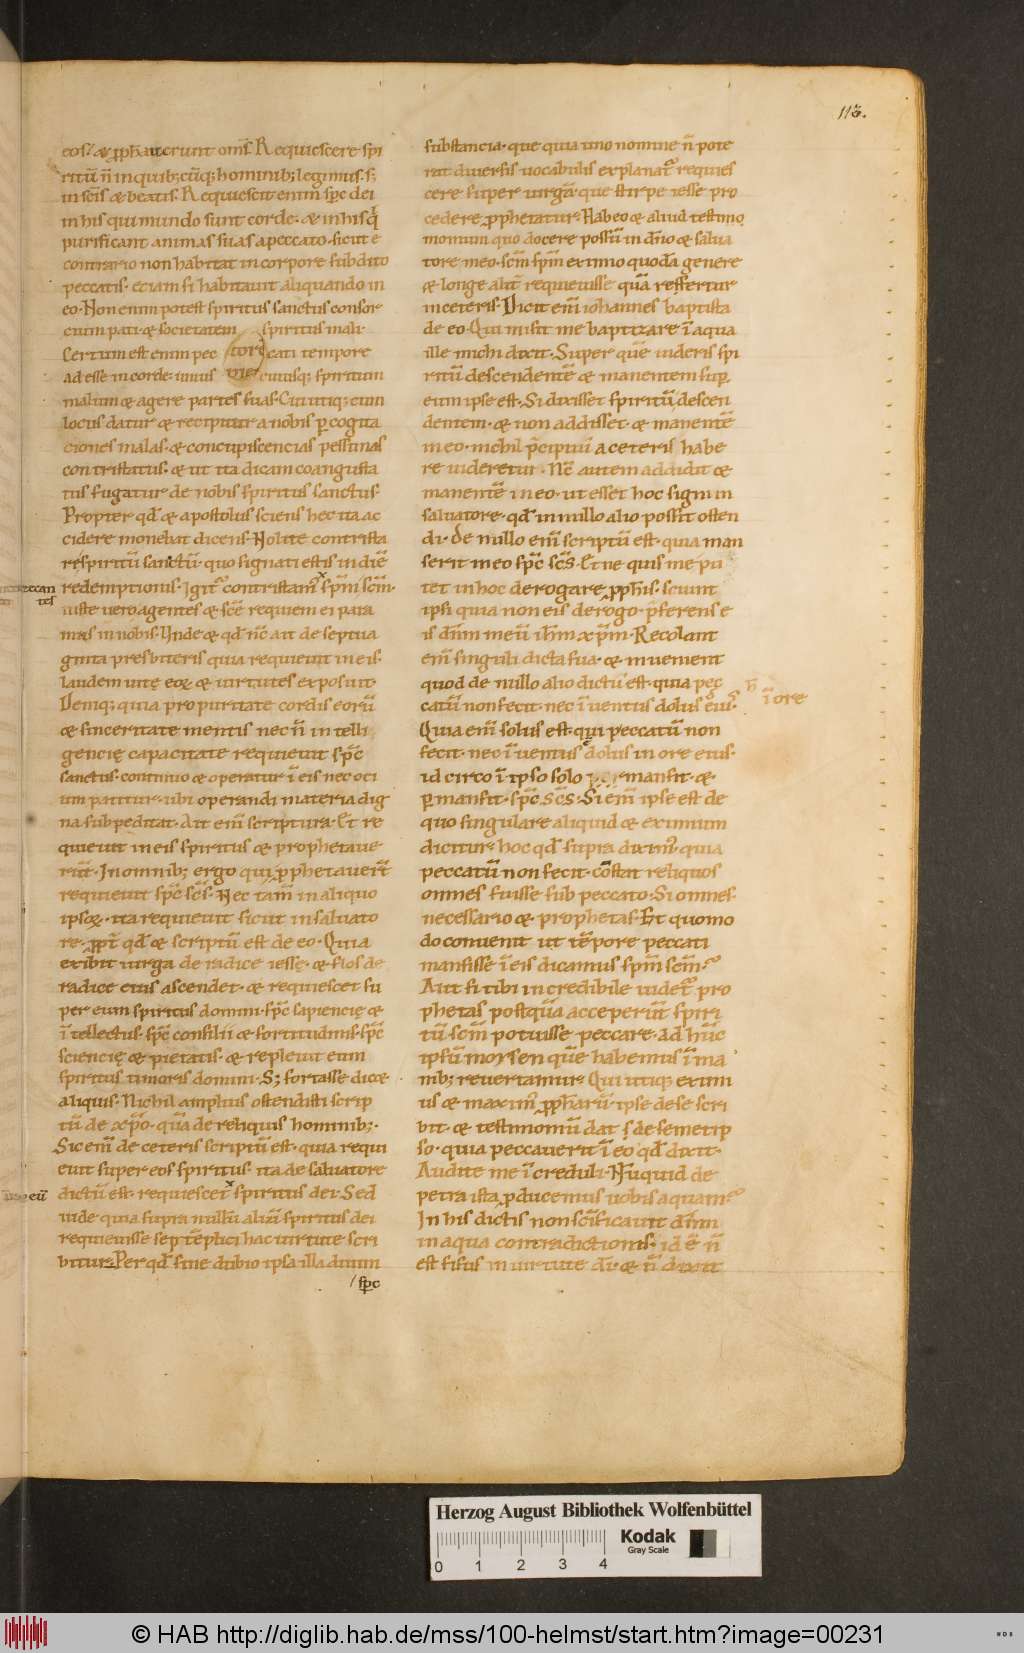 113.
eos. & ꝓph̄auerunt om̄s. Requiescere spi
ritū n̄ in quib; cūq; hominib; legimus. s;
in sc̄is & beatis. Requiescit enim sp̄c dei
in his qui mundo sunt corde. & in his q̇
purificant animas suas a peccato. sicut e
contrario non habitat in corpore subdito
peccatis. eciam si habitauit aliquando in
eo. Non enim potest spiritus sanctus consor
cium pati & societatem spiritus mali.
Certum est enim pec cati tempore
ad esse in corde uniuscuiusq; spiritum
malum & agere partes suas. Cui utiq; cum
locus datur & recipitur a nobis ꝑ cogita
ciones malas. & concupiscencias pessimas
contristatus. & ut ita dicam coangusta
tus fugatur de nobis spiritus sanctus.
Propter qd̄ & apostolus sciens hec ita ac
cidere monebat dicens. Nolite contrista
re spiritū sanctū. quo signati estis in diē
redemptionis. Igit᷑ contristam᷑ sp̄m sc̄m.
iuste uero agentes & sc̄e requiem ei para
mus in nobis. Unde & qd̄ nc̄ ait de septua
ginta presbiteris quia requieuit in eis.
laudem uite eoꝝ & uirtutes exposuit.
Deniq; quia pro puritate cordis eorū
& sinceritate mentis nec n̄ intelli
gencię capacitate requieuit sp̄c
sanctus. continuo & operatur ī eis nec oci
um patitur. ubi operandi materia dig
na subpeditat. Ait em̄ scriptura. Et re
quieuit in eis spiritus & prophetaue
rūt. In omnib; ergo qui ꝓphetauerūt
requieuit sp̄c sc̄s. Nec tam̄ in aliquo
ipsoꝝ. ita requieuit sicut in saluato
re. ꝓpt̄ qd̄ & scriptū est de eo. Quia
exibit uirga de radice iesse. & flos de
radice eius ascendet. & requiescet su
per eum spiritus domini. sp̄c sapiencię &
ītellectus. sp̄c consilii & fortitudinis. sp̄c
sciencię & pietatis. & repleuit eum
spiritus timoris domini. S; fortasse dic&
aliquis. Nichil amplius ostendisti scrip
tū de xp̄o. quā de reliquis hominib;.
Sic em̄ de ceteris scriptū est. quia requi
euit super eos spiritus. ita de saluatore
dictū est. requiescet spiritus dei. Sed
uide quia supra nullū aliū spiritus dei
requieuisse septēplici hac uirtute scri
bitur. Per qd̄ sine dubio ipsa illa diuini
sp̄c
substancia. que quia uno nomine n̄ pote
rat diuersis uocabulis explanat᷑ requies
cere super uirgā que stirpe iesse pro
cedere ꝓphetatur. Habeo & aliud testi
monium quo docere possū in dn̄o & salua
tore meo. sc̄m sp̄m eximio quodā genere
& longe alit̄ requieuisse quā reffertur
in ceteris. Dicit em̄ iohannes baptista
de eo. Qui misit me baptizare ī aqua
ille michi dixit. Super quē uideris spi
ritū descendentē & manentem suꝑ
eum ipse est. Si dixisset spiritū descen
dentem. & non addisset. & manentē
in eo. nichil p̄cipuū a ceteris habe
re uideretur. Nc̄ autem addidit &
manentē in eo. ut esset hoc signi in
saluatore. qd̄ in nullo alio possit osten
di. De nullo em̄ scriptū est. quia man
serit in eo sp̄c sc̄s. Et ne quis me pu
tet in hoc derogare ꝓph̄is. sciunt
ipsi quia non eis derogo. p̄ferens e
is dn̄m meū ih̄m xp̄m. Recolant
em̄ singuli dicta sua. & inuenient
quod de nullo alio dictū est. quia pec
catū non fecit. nec īuentus dolus eiꝰ.
ī ore
Quia em̄ solus est. qui peccatū non
fecit. nec īuentus dolus in ore eius.
id circo ī ipso solo mansit. &
ꝑmansit. sp̄c sc̄s. Si em̄ ipse est de
quo singulare aliquid & eximium
dicitur. hoc qd̄ supra diximꝰ. quia
peccatū non fecit. cōstat reliquos
omnes fuisse sub peccato. Si omnes.
necessario & prophetas. Et quomo
do conuenit ut tēpore peccati
mansisse ī eis dicamus sp̄m sc̄m?
Aut si tibi incredibile uidet᷑ pro
phetas postquā acceperūt spiri
tū sc̄m potuisse peccare. ad hūc
ipsū moysen quē habemus ī ma
nib; reuertamur. Qui utiq; eximi
us & maximꝰ ꝓph̄arū. ipse de se scri
bit. & testimoniū dat de semetip
so. quia peccauerit ī eo qd̄ dixit.
Audite me īcreduli. Nūquid de
petra ista ꝓducemus uobis aquam?
In his dictis non sc̄ificauit dn̄m
in aqua contradictionis. id ē n̄
est fisus in uirtute di. & n̄ dixit
Herzog August Bibliothek Wolfenbüttel
0 1 2 3 4
Kodak
Gray Scale
© HAB http://diglib.hab.de/mss/100-helmst/start.htm?image=00231